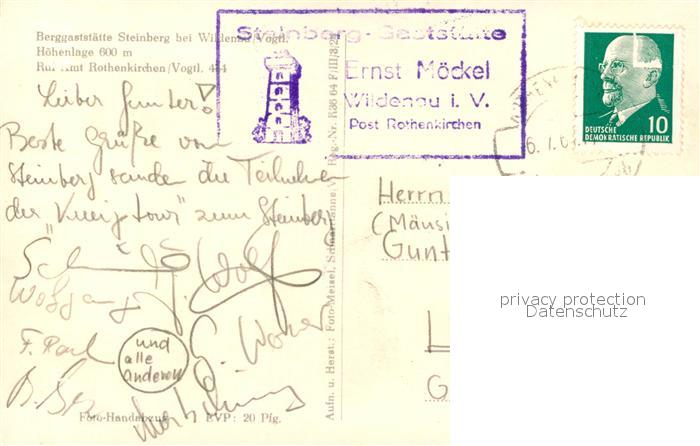 Berggaststätte Steinberg bei Wildenau/Vogtl.
Höhenlage 600 m
Ruf Amt Rothenkirchen/Vogtl. 484
Steinberg-Gaststätte
Ernst Möckel
Wildenau i. V.
Post Rothenkirchen
DEUTSCHE
DEMOKRATISCHE REPUBLIK
10
Lieber Gunter!
Beste Grüße vom
Steinberg senden die Teilnehmer
der "Kneiptour" zum Steinberg
Wolf
Wolfgang
und
alle
anderen
Foto-Handabzug EVP: 20 Pfg.
Aufn. u. Herst.: Foto-Meisel,
Herrn
(Mäusi
Gunt
L
G
privacy protection
Datenschutz